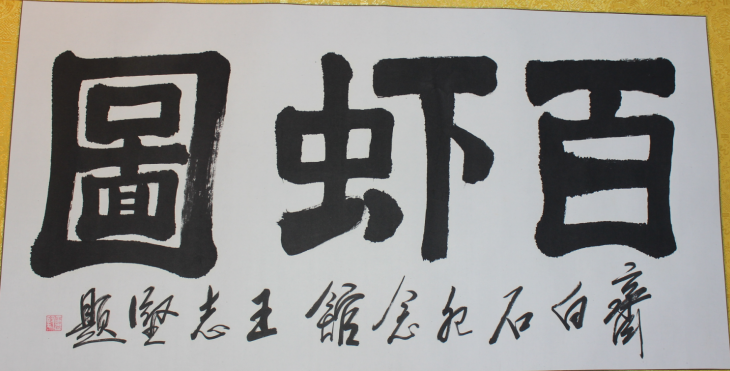 百虾圖
齊白石紀念館 王志堅題